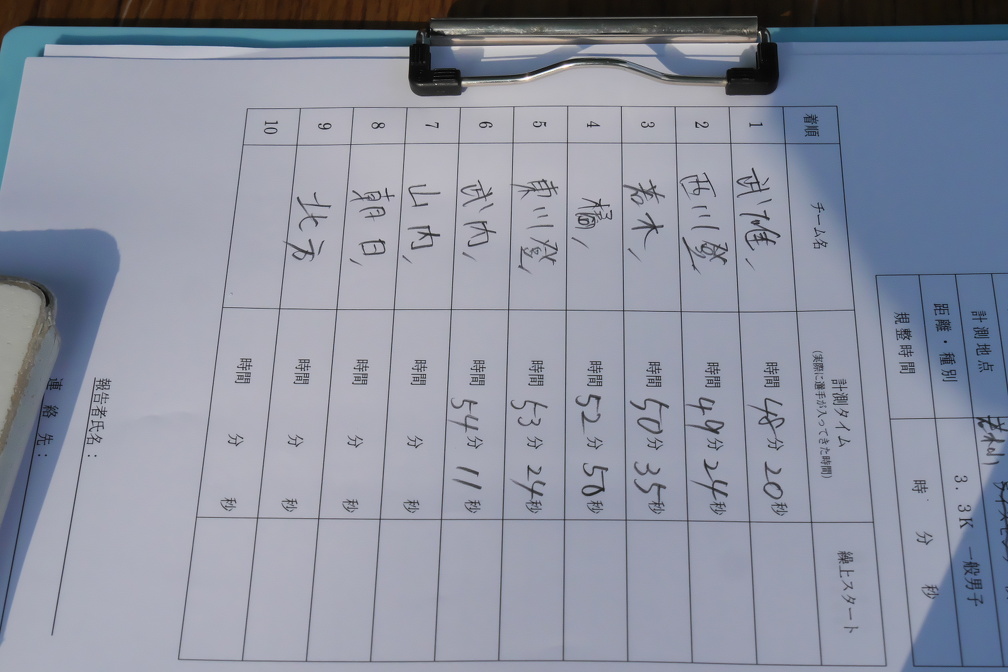 計測地点
距離・種別 3.3K 一般男子
規整時間 時 分 秒
着順 チーム名 計測タイム (実際に選手が入ってきた時間) 繰上スタート
1 武雄、 時間 48分 20秒
2 西川登 時間 49分 24秒
3 若木、 時間 50分 35秒
4 橘、 時間 52分 50秒
5 東川登、 時間 53分 24秒
6 武内、 時間 54分 11秒
7 山内、 時間 分 秒
8 朝日、 時間 分 秒
9 北方 時間 分 秒
10 時間 分 秒
報告者氏名：
連絡先：